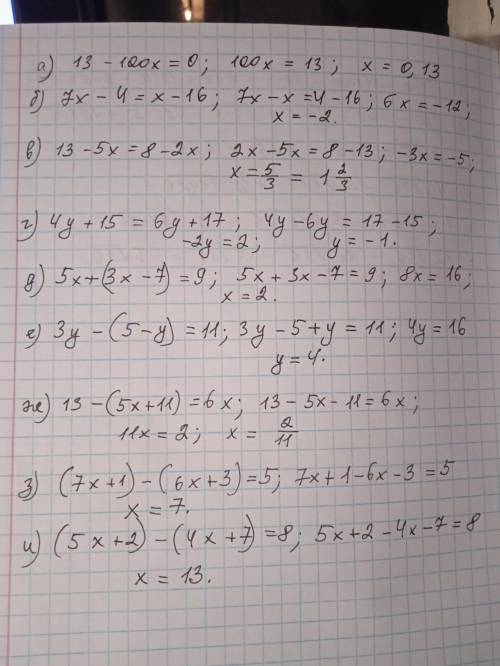 а) 13 - 100x = 0; 100x = 13; x = 0,13
б) 7x - 4 = x - 16; 7x - x = 4 - 16; 6x = -12;
x = -2.
в) 13 - 5x = 8 - 2x; 2x - 5x = 8 - 13; -3x = -5;
x = 5/3 = 1 2/3
г) 4y + 15 = 6y + 17; 4y - 6y = 17 - 15;
-2y = 2; y = -1.
д) 5x + (3x - 7) = 9; 5x + 3x - 7 = 9; 8x = 16;
x = 2.
е) 3y - (5 - y) = 11; 3y - 5 + y = 11; 4y = 16
y = 4.
ж) 13 - (5x + 11) = 6x; 13 - 5x - 11 = 6x;
11x = 2; x = 2/11
з) (7x + 1) - (6x + 3) = 5; 7x + 1 - 6x - 3 = 5
x = 7.
и) (5x + 2) - (4x + 7) = 8; 5x + 2 - 4x - 7 = 8
x = 13.